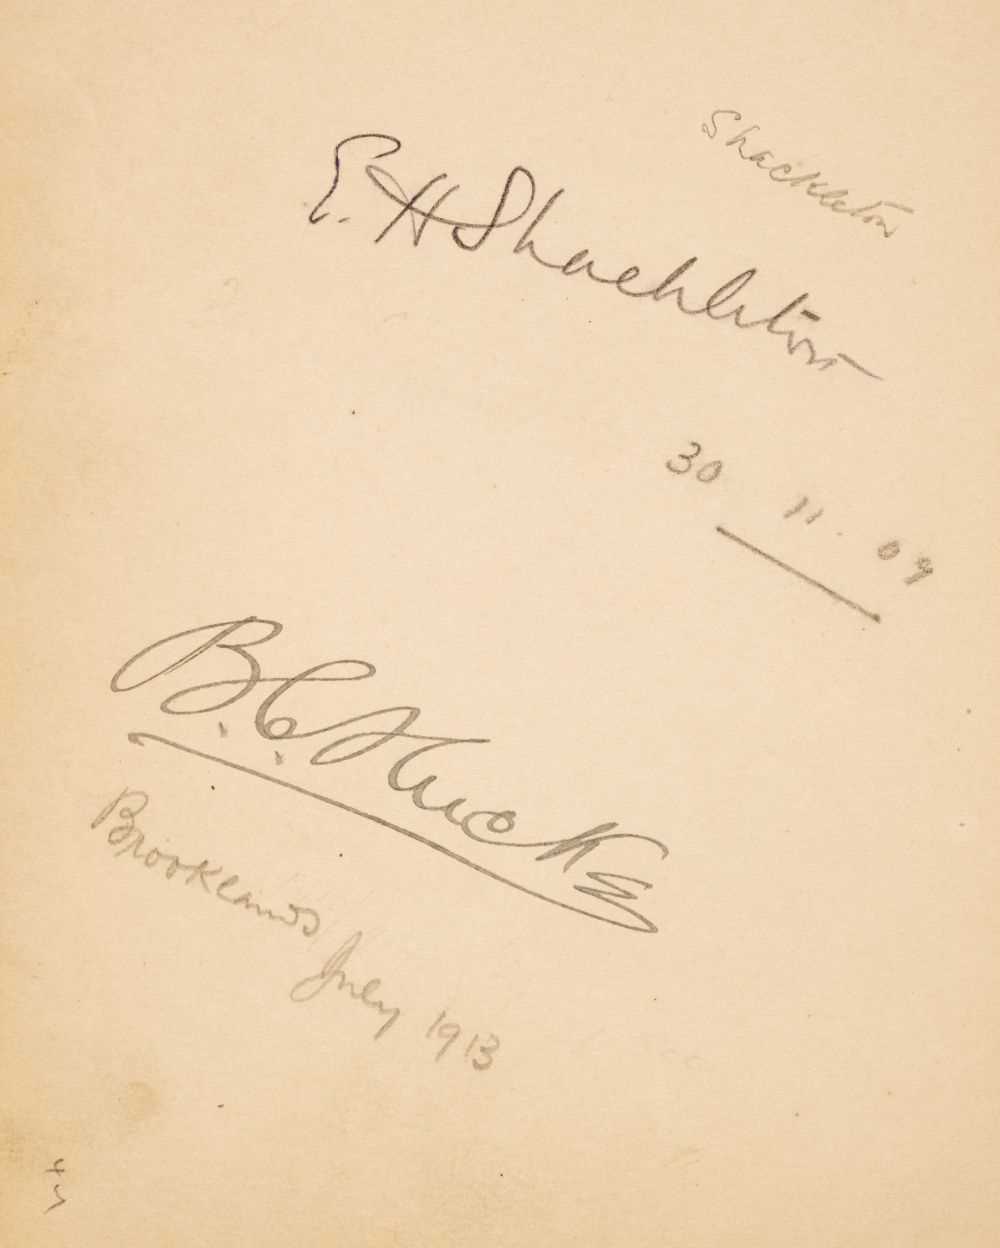 Shackleton
E. H Shackleton
30 11 . 09
B. C. Hucks
Brooklands
July 1913